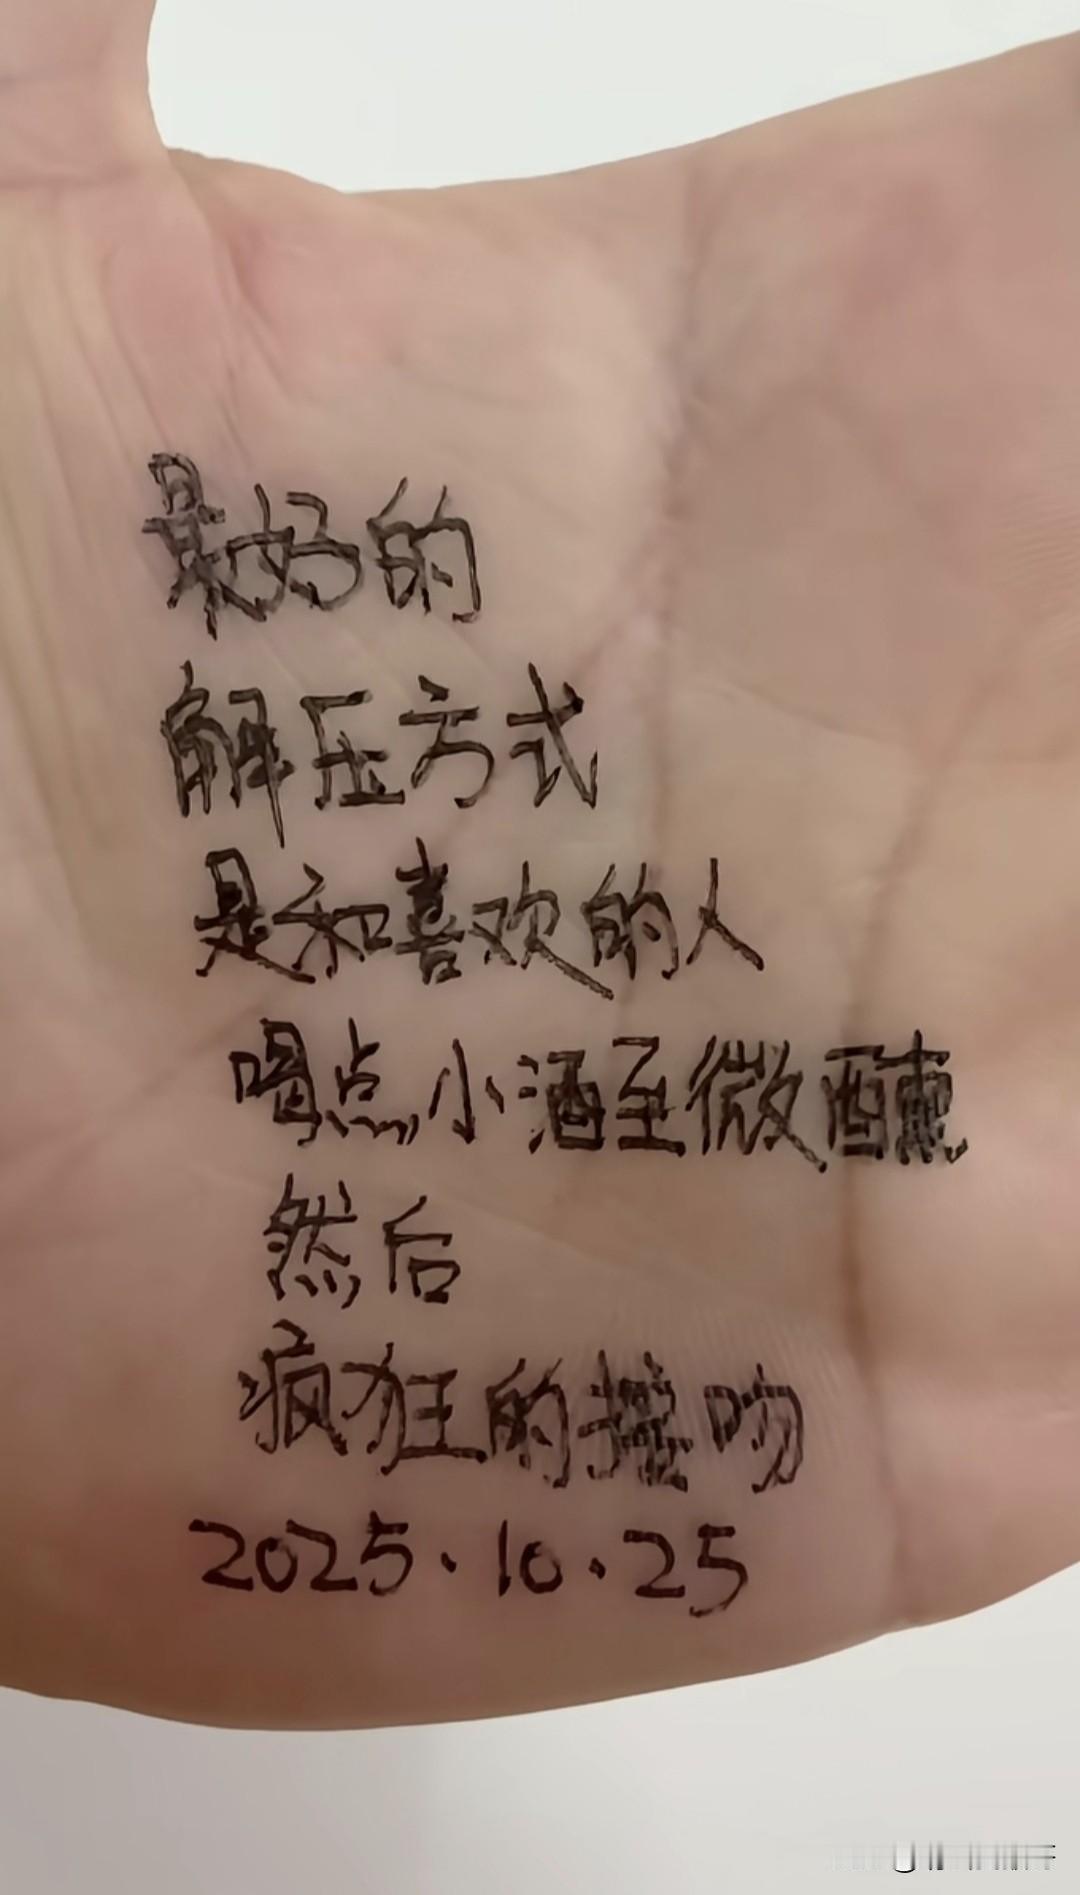 最好的
解压方式
是和喜欢的人
喝点小酒至微醺
然后
疯狂的接吻
2025.10.25